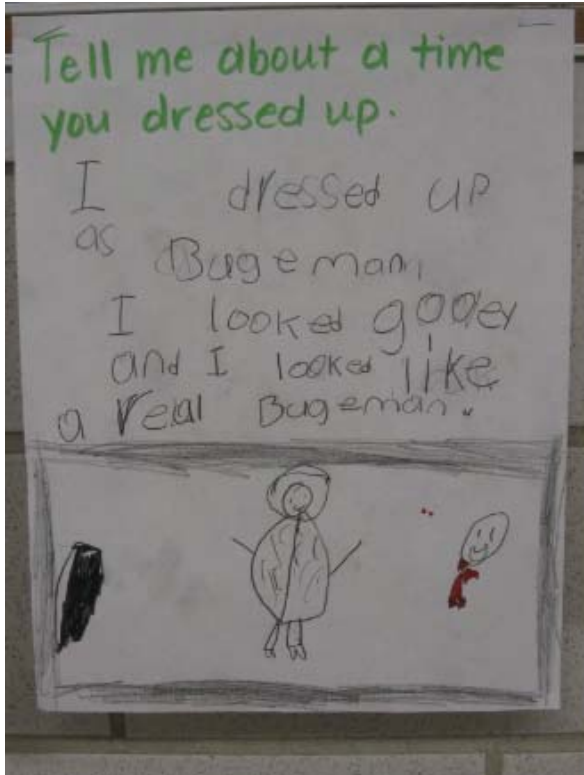 Tell me about a time
you dressed up.
I dressed up
as Bugeman,
I looked gooey
and I looked like
a real Bugeman.